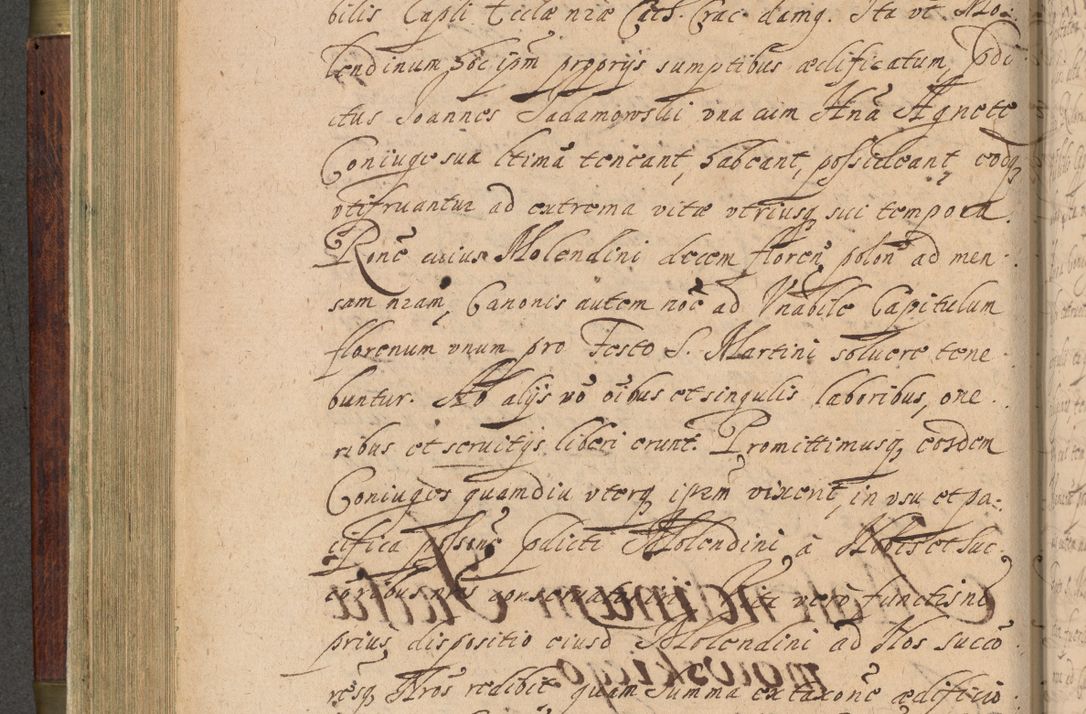 bilis Capli Ecclæ nræ Cath. Crac. damq. Ita vt Mo-
lendinum hoc ipm proprijs sumptibus ædificatum, pdi
ctus Joannes Sadamowski vna cum Anā Agnete
Coniuge sua ltimā teneant, habeant, possideant, eoq
vtifruantur ad extrema vitæ vtriusq sui tempora.
Ronē cuius Molendini decem floren polon ad men-
sam nram, Canonis autem noē ad Vnabile Capitulum
florenum vnum pro Festo S. Martini soluere tene
buntur. Ab alijs vō oibus et singulis laboribus, one
ribus et seruitijs liberi erunt. Promittimusq, eosdem
Coniuges quamdiu vterq ipsm vixerit, in vsu et pa-
cifica possnē pdicti Molendini à Nobis et suc
coribus nris conseruaturi. Vita vero functis ne
prius dispositio eiusd Molendini ad Nos succō
resq Nros redibit quam summa ex taxone ædificio